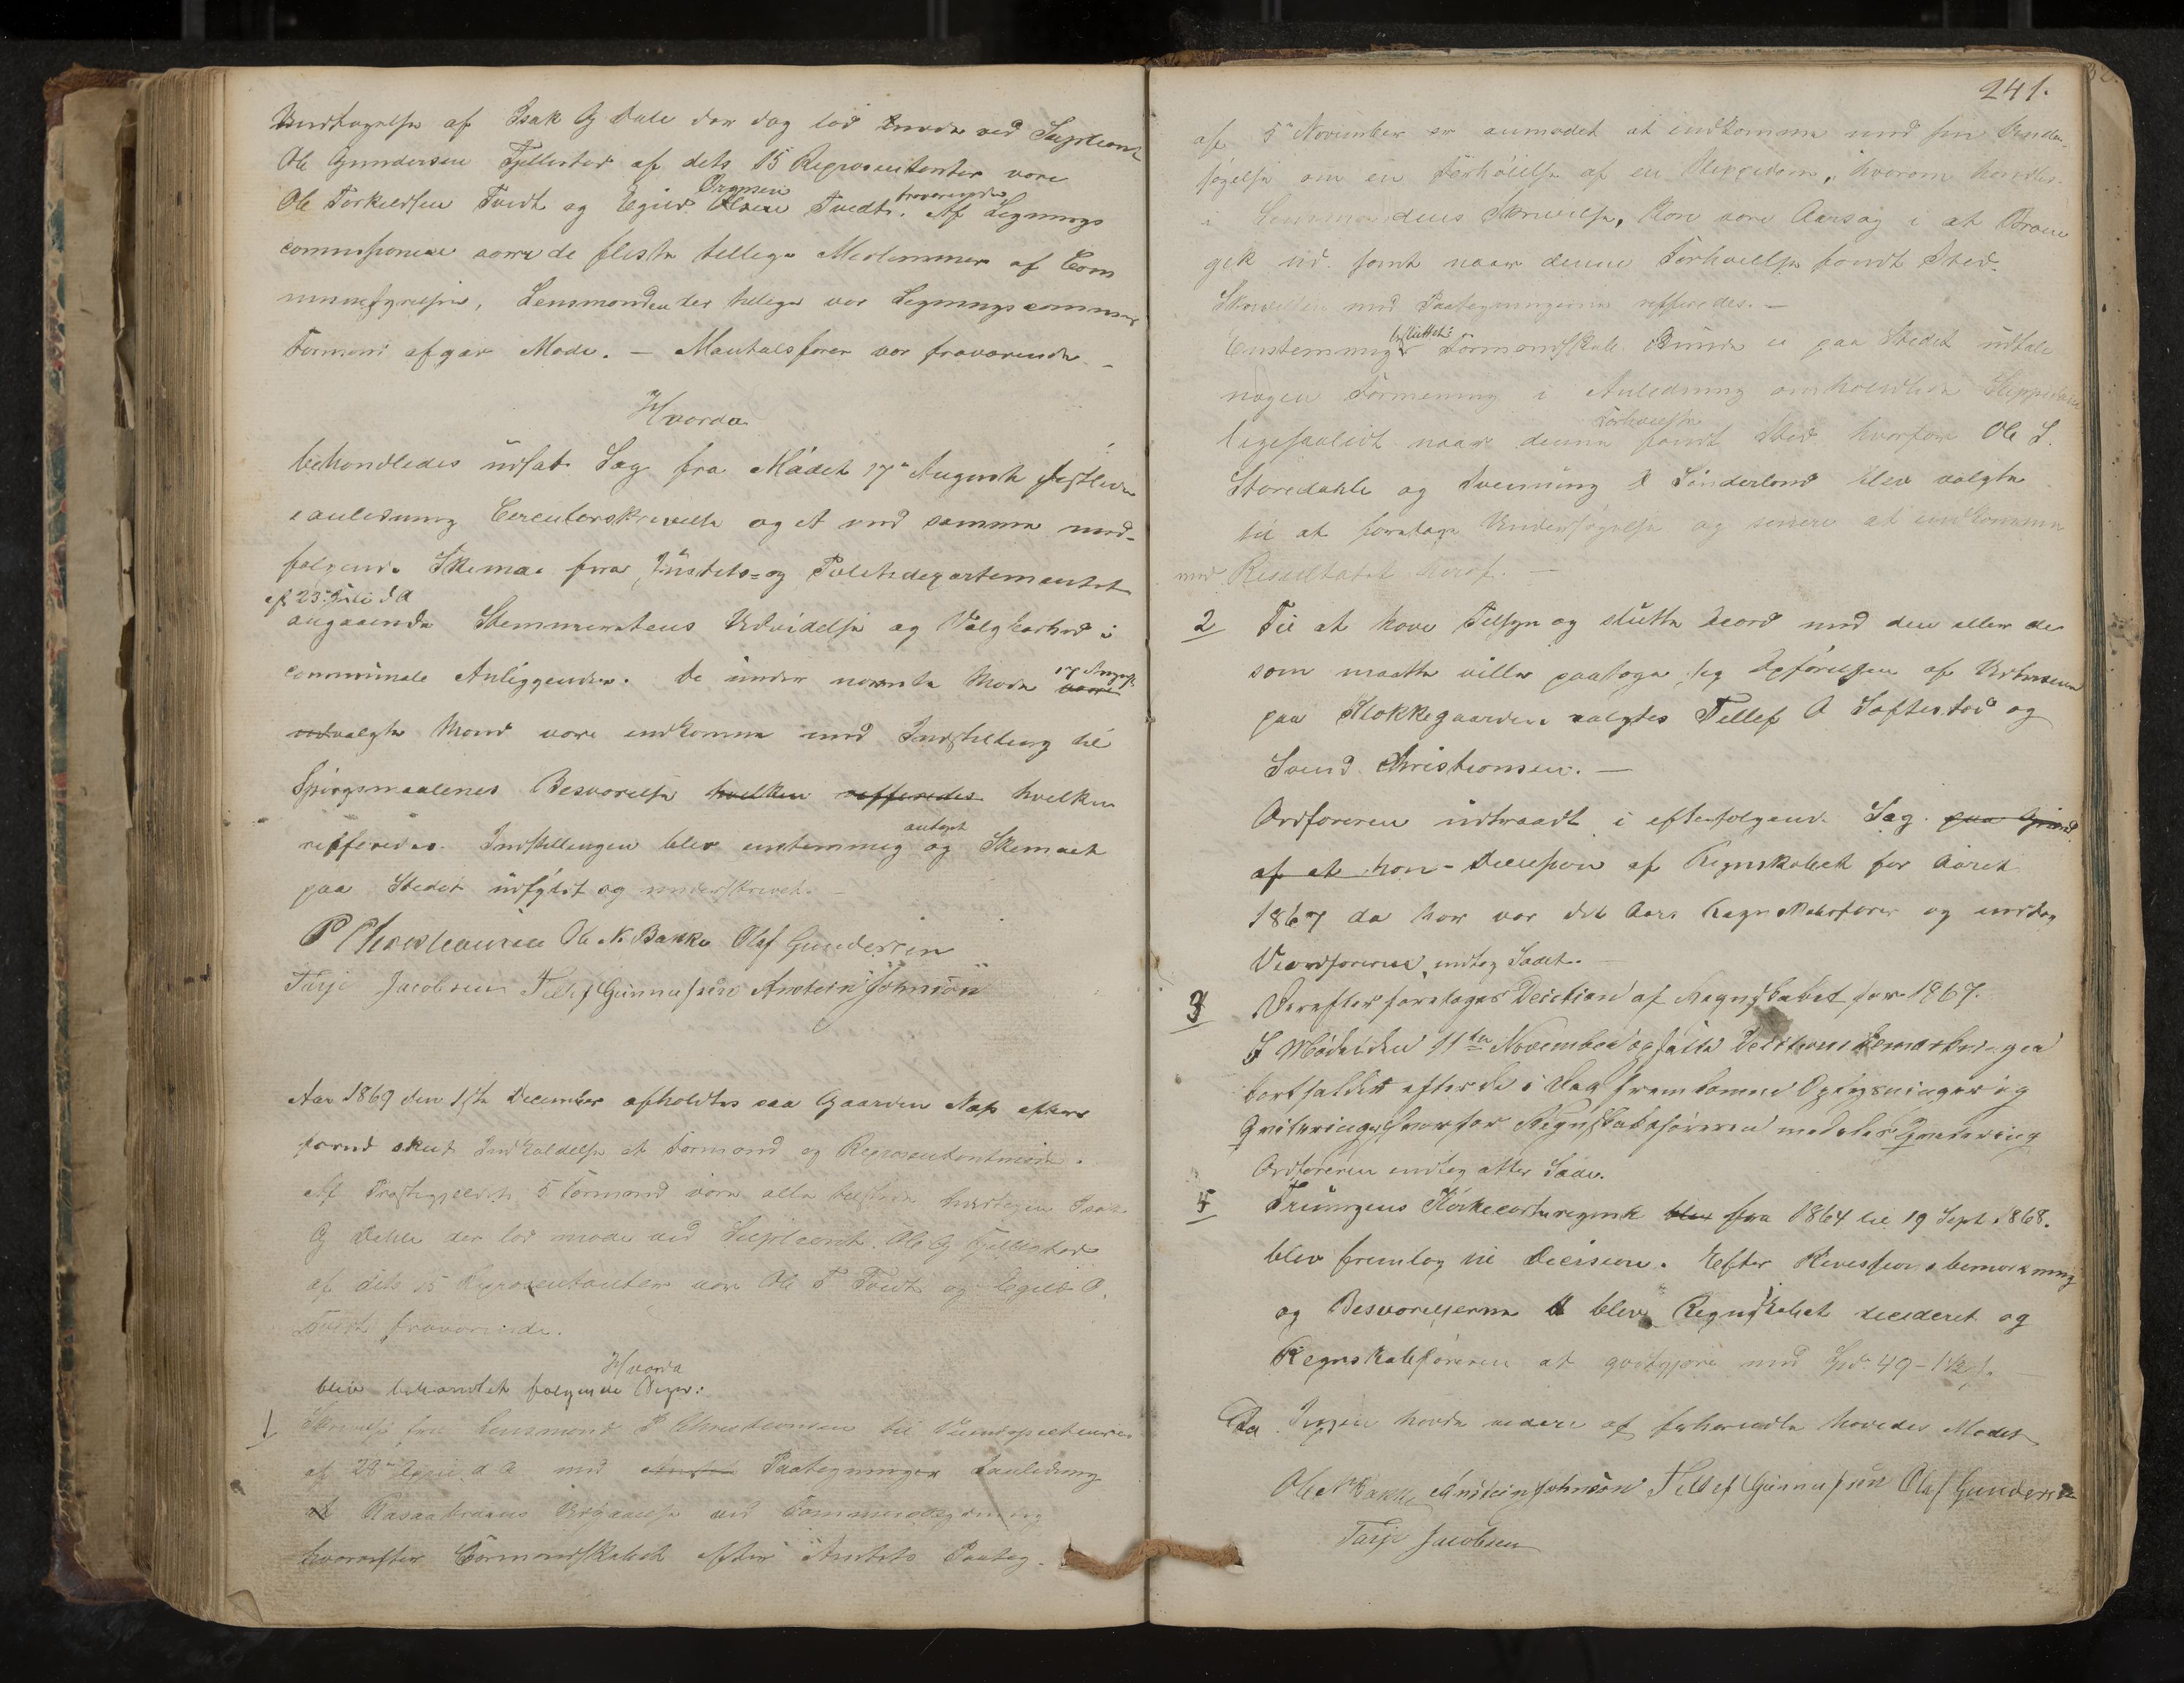 Undtagelse af Isak G Dale der dag lod møde ved Suppleant
Ole Gundersen Fjellestad af dets 15 Representanter vare
Ole Torkeldsen Tvedt og Egild Olsen Tvedt fraværende. Af Lignings
commissionen vare de fleste tillige Medlemmer af Com
munestyrelsen, Lensmanden der tillige var Lignings commis
Formand afgav Møde. – Mantalsfører var fraværende –
Hvorda
behandledes udsat Sag fra Mødet 17de August sidstleden
i anledning Circulærskrivelse og et med samme med-
følgende Skema fra Justits- og Politidepartementet
af 23de Juli d A
angaaende Stemmerettens Udvidelse og Valgbarhed i
communale Anliggender. De under nævnte Møde 17 August
udvalgte Mænd vare indkomne med Indstilling til
Spørgsmaalenes Besvarelse hvilken refferedes hvilken
refferedes. Indstillingen blev enstemmig antaget og Skemaet
paa Stedet udfyldt og underskrevet. –
P Christiansen Ole N. Bakke Olaf Gundersen
Tarje Jacobsen Tellef Gunnufsen Anstein Johnsøn
Aar 1869 den 1ste December afholdtes paa Gaarden Næs efter
forud skeet Indkaldelse et Formand og Representantmøde.
Af Præstegjeldets 5 Formænd vare alle tilstede undtagen Isak
G Dahle der lod møde ved Suppleant Ole G Fjellestad
af dets 15 Representanter vare Ole T Tvedt og Egild O.
Tvedt fraværende.
Hvorda
blev behandlet følgende Sager:
1 Skrivelse fra Lensmand P Christiansen til Veiinspecteuren
af 28de April d A med Amtets Paategninger i anledning
at Rasaabraaens Udgaaelse ved Tømmerflødning
hvorefter Formandskabet efter Amtets Paateg-
241.
af 5te November er anmodet at indkomme med sin Under-
søgelse om en Forhøielse af en Klippedam, hvorom handles
i Lensmandens Skrivelse, kan være Aarsag i at Broen
gik ud samt naar denne Forhøielse fandt Sted.
Skrivelsen med Paategningerne refferedes. –
Enstemmig besluttet: Formandskabet kunde ei paa Stedet udtale
nogen Formening i Anledning omhandlede Klippedam
ligesaalidt naar denne Forhøielse fandt Sted hvorfor Ole S.
Storedahle og Svenning S Sinderland blev valgte
til at foretage Undersøgelse og senere at indkomme
med Resultatet heraf. –
2 Til at have Tilsyn og slutte Acord med den eller de
som maatte ville paatage sig Opførelsen af Udhusene
paa Klokkegaarden valgtes Tellef A Løftestad og
Svend Christiansen. –
Ordføreren udtraadt i efterfølgende Sag. paa Grund
af at han – Decision af Regnskabet for Aaret
1867 da han var det Aars Regnskabsfører og imidlg
Viceordføreren indtog Sædet. –
3 Derefter foretoges Decision af Regnskabet for 1867.
I Mødet den 11te November opsatte Decisions Bemærkninger
bortfaldt efter de i Dag fremkomne Oplysninger og
Qvitteringer hvorfor Regnskabsføreren meddeles Qvittering
Ordføreren indtog atter Sæde.
4 Trungens Kirkecasseregnsk blev fra 1864 til 19 Sept 1868.
blev fremlag til Decision. Efter Revisions bemærkning
og Besvarelserne blev Regnskabet decideret og
Regnskabsføreren at godtgjøre med Spd. 49 – 1½ s. –
Da Ingen havde videre at forhandle hævedes Mødet
Ole N Bakke Anstein Johnsøn Tellef Gunnufsen Olaf Gundersen
Tarje Jacobsen